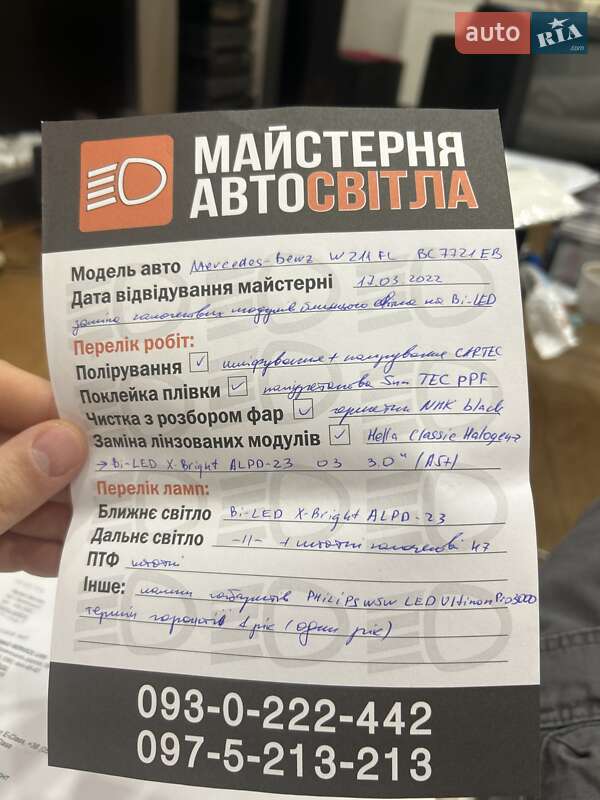 auto RIA .com
МАЙСТЕРНЯ
АВТОСВІТЛА
Модель авто Mercedes-Benz W211 FL BC7721EB
Дата відвідування майстерні 17.03.2022
заміна галогенових модулів ближнього світла на Bi-LED
Перелік робіт:
Полірування ✓ шліфування + полірування CARTEC
Поклейка плівки ✓ поліуретанова Sun TEC PPF
Чистка з розбором фар ✓ герметик NHK black
Заміна лінзованих модулів ✓ Hella Classic Halogen →
→ Bi-LED X-Bright ALPD-23 03 3.0" 
Перелік ламп:
Ближнє світло Bi-LED X-Bright ALPD-23
Дальнє світло -11- + штатні галогенові H7
ПТФ штатні
Інше: лампи габаритів PHILIPS W5W LED Ultinon Pro3000
термін гарантії 1 рік (один рік)
093-0-222-442
097-5-213-213